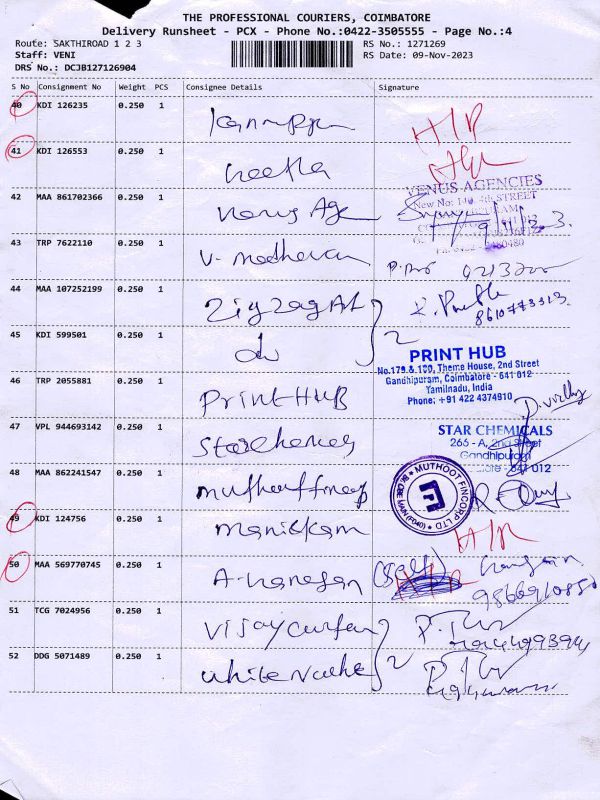 THE PROFESSIONAL COURIERS, COIMBATORE
Delivery Runsheet - PCX - Phone No.:0422-3505555 - Page No.:4
Route: SAKTHIROAD 1 2 3 RS No.: 1271269
Staff: VENI RS Date: 09-Nov-2023
DRS No.: DCJB127126904
S No Consignment No Weight PCS Consignee Details Signature
40 KDI 126235 0.250 1
41 KDI 126553 0.250 1 Geetha
VENUS AGENCIES
New No: 140, 4th STREET
42 MAA 861702366 0.250 1 Venus Age
43 TRP 7622110 0.250 1 V. Madhavan
44 MAA 107252199 0.250 1 Zigzag Art
8610773313
45 KDI 599501 0.250 1 do 2
PRINT HUB
No.179 & 180, Theme House, 2nd Street
Gandhipuram, Coimbatore - 641 012
Tamilnadu, India
Phone: +91 422 4374910
46 TRP 2055881 0.250 1 Print HUB
47 VPL 944693142 0.250 1 Star Chemicals
STAR CHEMICALS
265 - A, 2nd Street
Gandhipuram
641 012
48 MAA 862241547 0.250 1 Muthoot Fincorp
MUTHOOT FINCORP LTD
49 KDI 124756 0.250 1 Manickam
50 MAA 569770745 0.250 1 A. Ganesan (Self)
51 TCG 7024956 0.250 1 Vijay Curtan
52 DDG 5071489 0.250 1 White Vache 2